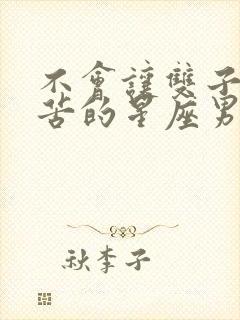 不會讓雙子
苦的星座男
秋李子